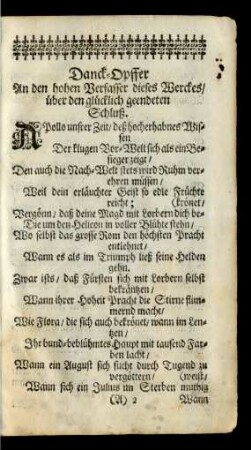 Danck-Opffer
An den hohen Verfasser dieses Werckes/
über den glücklich geendeten
Schluß.
APollo unsrer Zeit/ deß hocherhabnes Wis-
sen
Der klugen Vor-Welt sich als ein Be-
sieger zeigt/
Den auch die Nach-Welt stets wird Ruhm ver-
ehren müssen/
Weil dein erläuchter Geist so edle Früchte
reicht; (krönet/
Vergönn/ daß deine Magd mit Lorbern dich be-
Die um den Helicon in voller Blühte stehn/
Wo selbst das grosse Rom den höchsten Pracht
entlehnet/
Wann es als im Triumph ließ seine Helden
gehn.
Zwar ists/ daß Fürsten sich mit Lorbern selbst
bekräntzen/
Wann ihrer Hoheit Pracht die Stirne flim-
mernd macht/
Wie Flora/ die sich auch bekrönet/ wann im Len-
tzen/
Ihr bund-beblühmtes Haupt mit tausend Far-
ben lacht/
Wann ein August sich sucht durch Tugend zu
vergöttern/ (weist/
Wann sich ein Julius im Sterben muthig
(A) 2 Wann